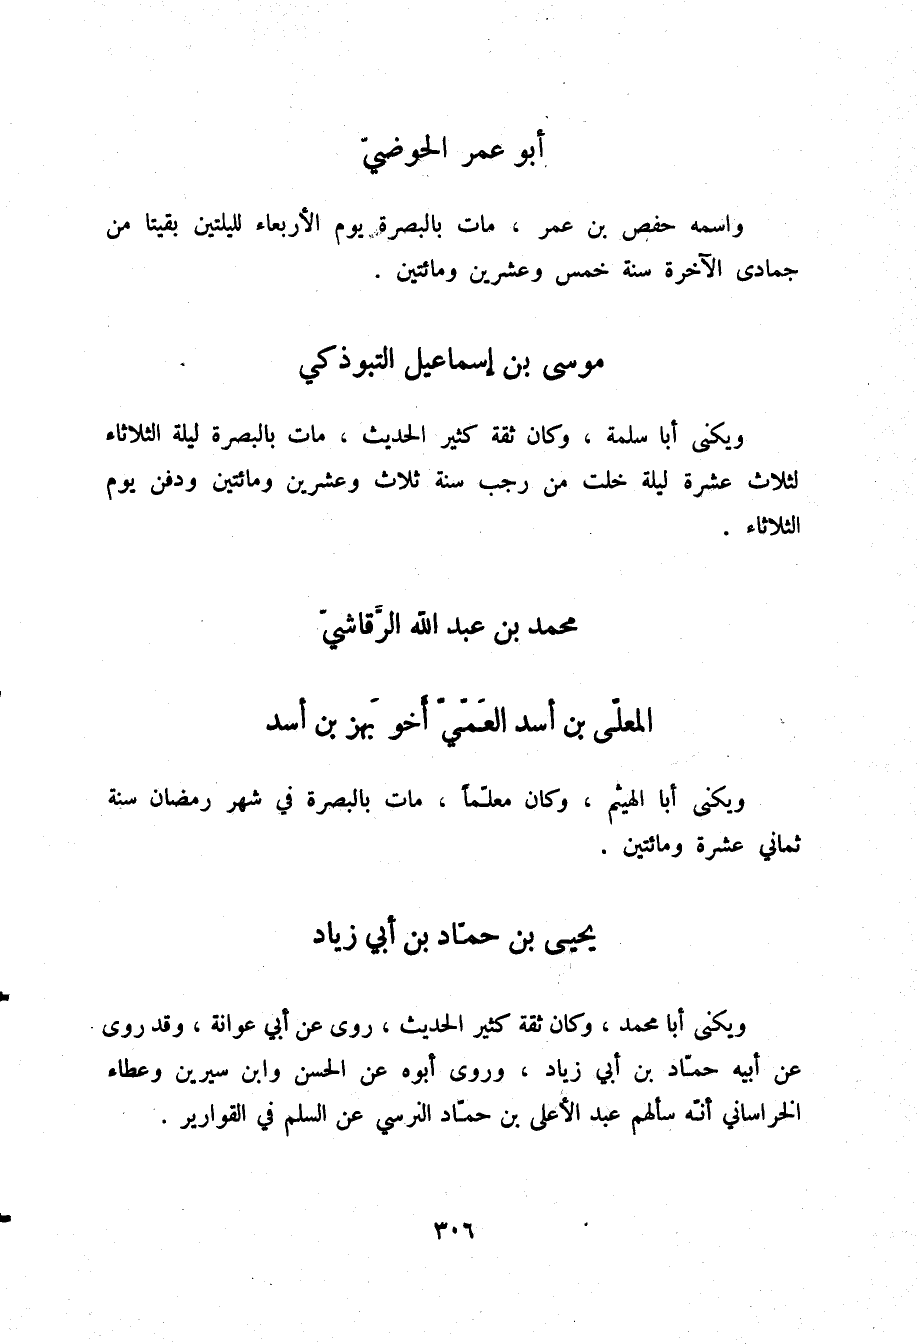 أبو عمر الحوضيّ
واسمه حفص بن عمر ، مات بالبصرة يوم الأربعاء لليلتين بقيتا من
جمادى الآخرة سنة خمس وعشرين ومائتين .
موسى بن إسماعيل التبوذكي
ويكنى أبا سلمة ، وكان ثقة كثير الحديث ، مات بالبصرة ليلة الثلاثاء
لثلاث عشرة ليلة خلت من رجب سنة ثلاث وعشرين ومائتين ودفن يوم
الثلاثاء .
محمد بن عبد الله الرَّقاشيّ
المعلّى بن أسد العَمّيّ أخو بَهز بن أسد
ويكنى أبا الهيثم ، وكان معلّماً ، مات بالبصرة في شهر رمضان سنة
ثماني عشرة ومائتين .
يحيى بن حمّاد بن أبي زياد
ويكنى أبا محمد ، وكان ثقة كثير الحديث ، روى عن أبي عوانة ، وقد روى
عن أبيه حمّاد بن أبي زياد ، وروى أبوه عن الحسن وابن سيرين وعطاء
الخراساني أنّه سألهم عبد الأعلى بن حمّاد النرسي عن السلم في القوارير .
٣٠٦